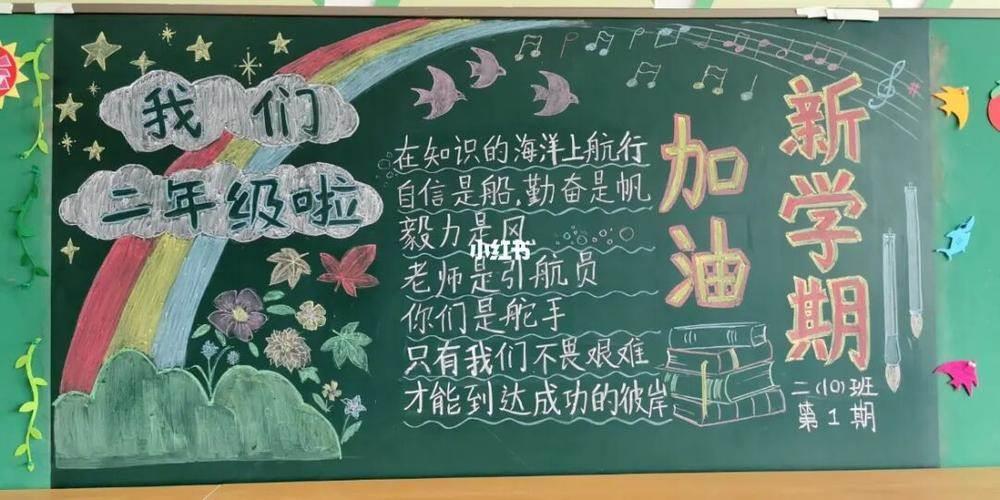 我们
二年级啦
在知识的海洋上航行
自信是船,勤奋是帆
毅力是风
老师是引航员
你们是舵手
只有我们不畏艰难
才能到达成功的彼岸
加油
新学期
二(10)班
第1期
小红书